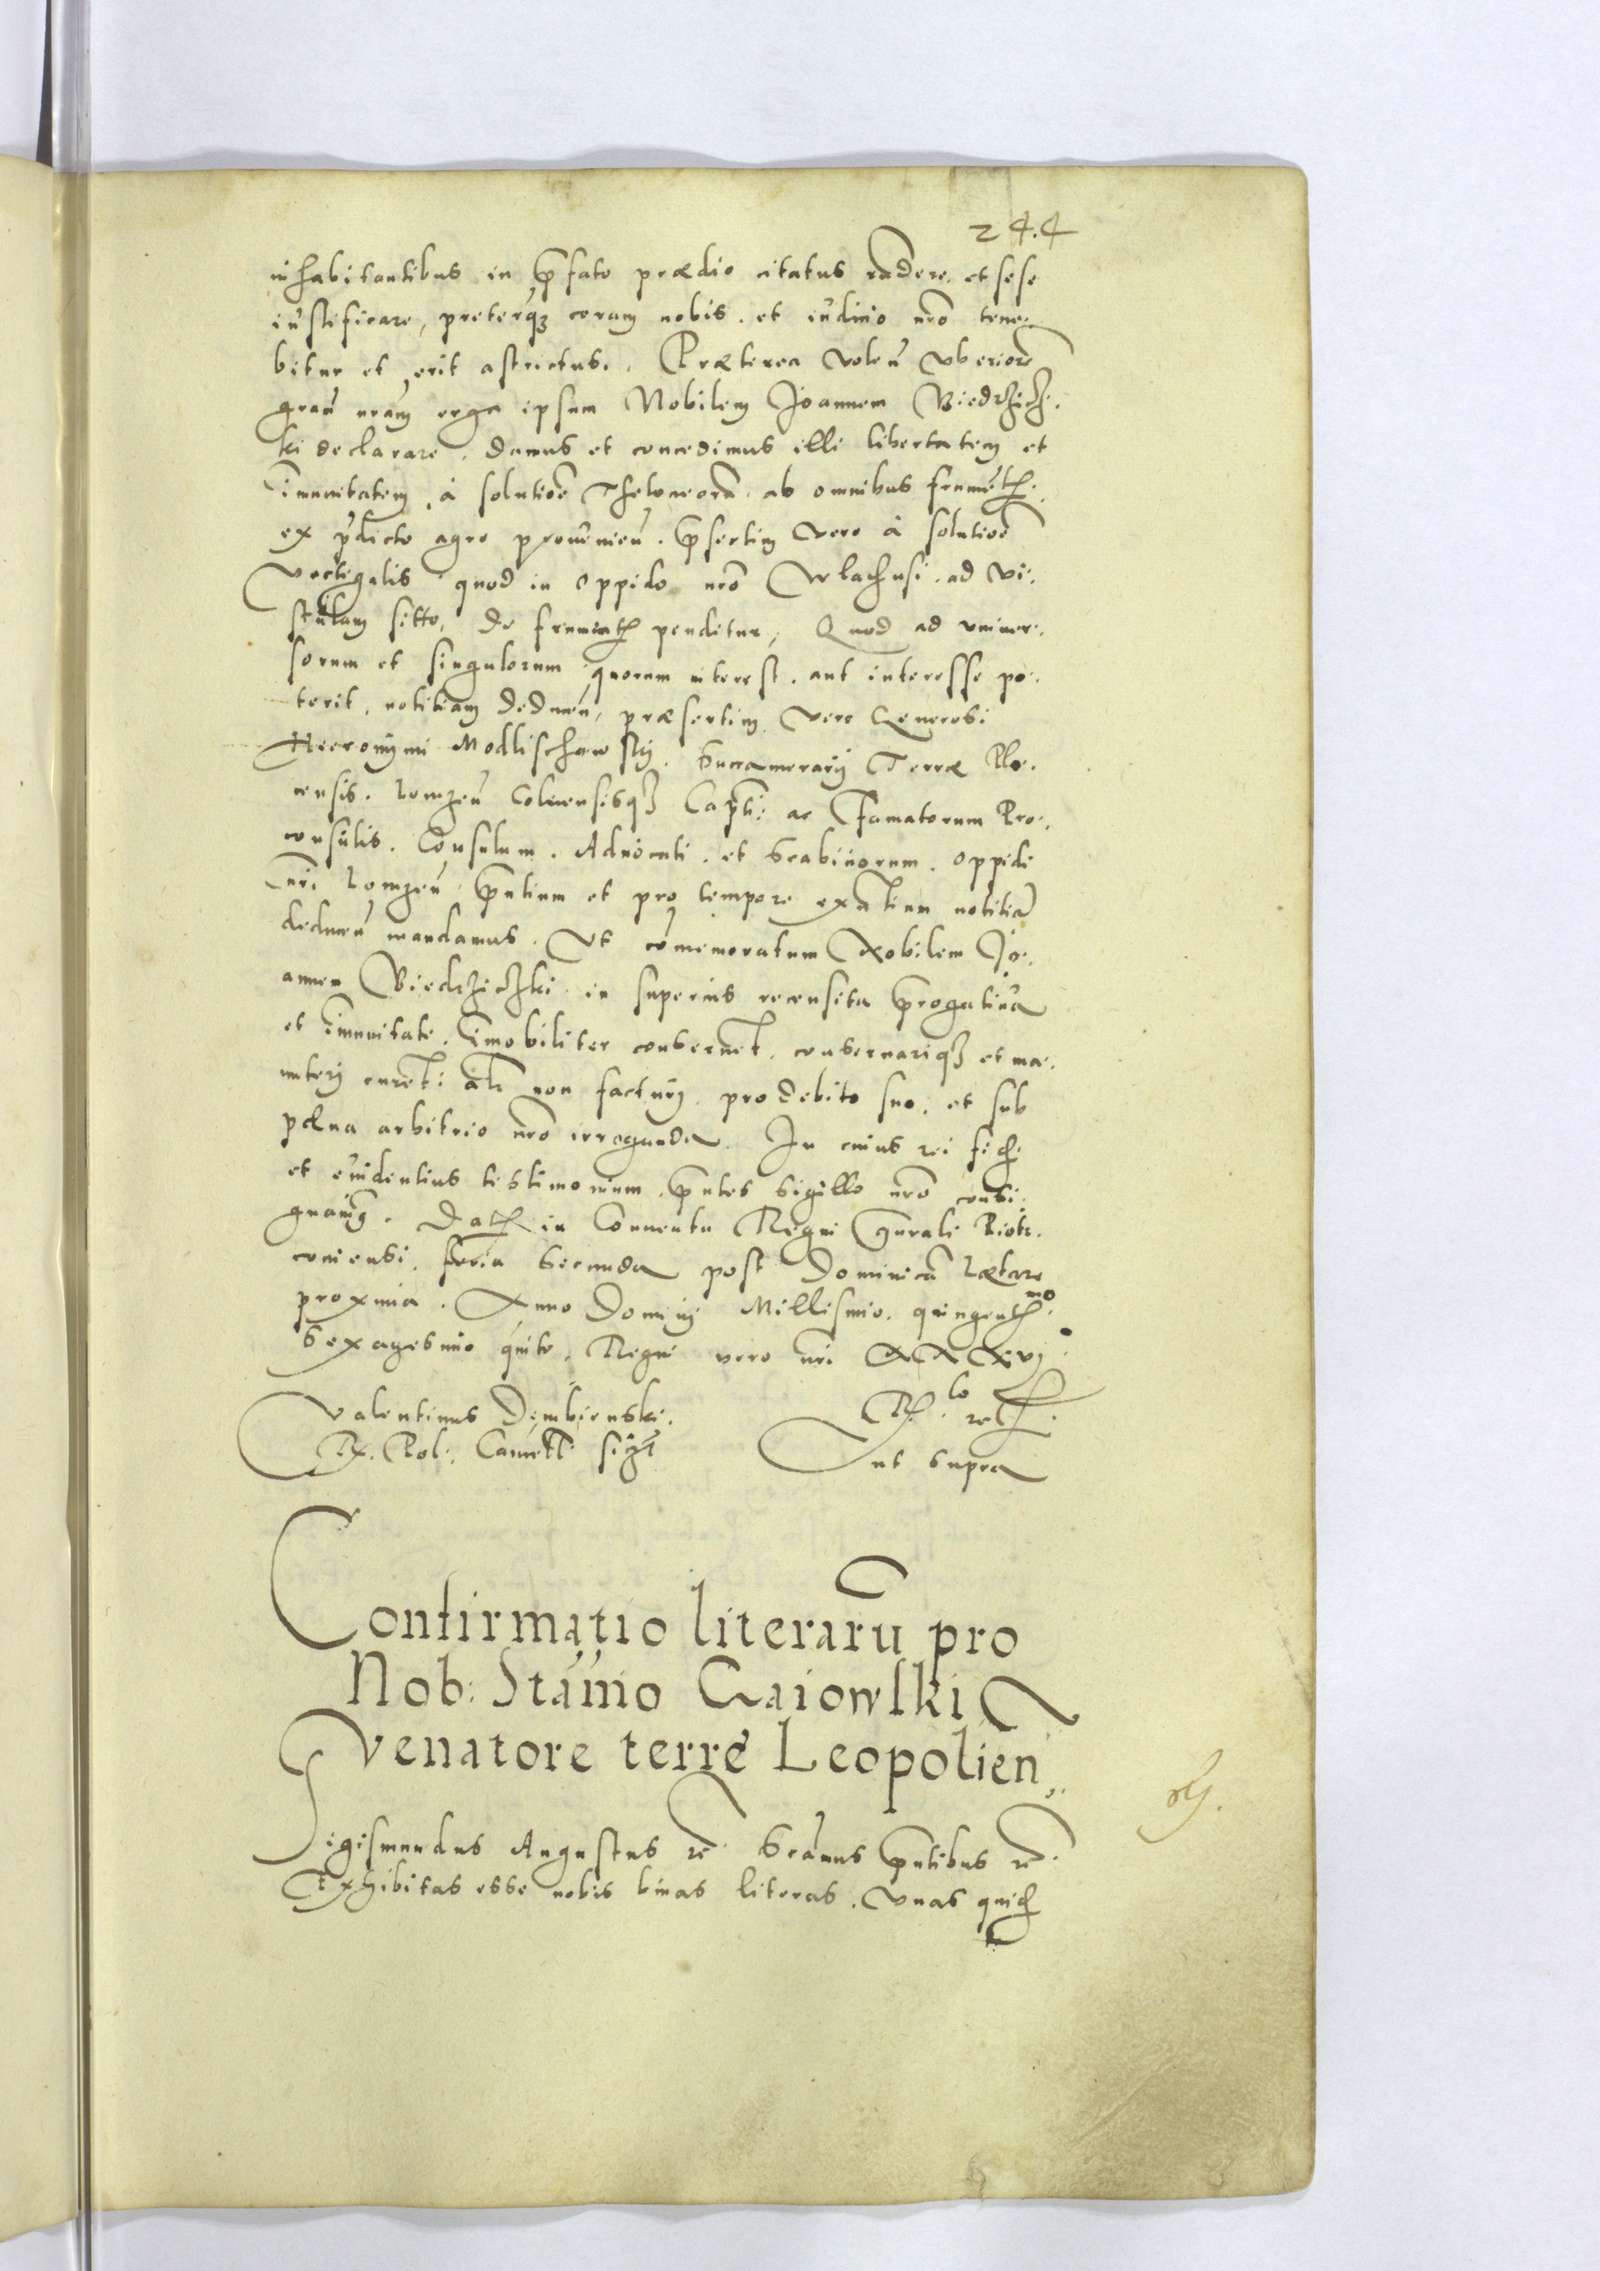 244
inhabitantibus in p̄fato prædio citatus r̄ndere. et sese
iustificare, preterq̃ coram nobis. et iudicio nr̄o tene-
bitur et erit astrictus. Præterea volen̄ vberiorē
gr̄am nr̄am erga ipsum Nobilem Joannem Biedrzicz-
ki declarare. damus et concedimus illi libertatem et
im̄unitatem, à solutiōe theloneorū. ab omnibus frumētis
ex p̄dicto agro provenien̄. p̄sertim vero à solutiōe
vectigalis quod in oppido nr̄o Wlachusi. ad Vi-
stulam sitto, de frumentis penditur, Quod ad univer-
sorum et singulorum quorum interest. aut interesse po-
terit, notitiam deducen̄, præsertim vero Generosi
Hieronymi Modlischewskÿ. Succamerarÿ Terræ Plo-
censis. Lomzen̄ Colnensisq̃ Capti: ac Famatorum Pro-
consulis. Consulum. Advocati. et Scabinorum. oppidi
nr̄i Lomzen̄ p̄ntium et pro tempore existen̄ notitiā
deducen̄ mandamus. Ut com̄emoratum Nobilem Jo-
annem Biedrziczki in superius recensita p̄rogativa
et im̄unitate. im̄obiliter conservent. conservariq̃ et ma-
nuteneri curent: alr̄ non facturi, pro debito suo. et sub
pœna arbitrio nr̄o irroganda. In cuius rei fidem
et evidentius testimonium. p̄ntes sigillo nr̄o consi-
gnavimus. Datum in Conventu Regni gn̄rali Piotr-
coviensi. feria secunda post Dominicā Lætare
proxima. Anno Domini Millesimo. quingentesimo
Sexagesimo quito. Regni vero nr̄i XXXVI
Valentinus Dembienski.
R. Pol: Cancell: sszt
R.lo rel.
ut supra
Confirmatio literarū pro
Nob: Stan̄io Gaiowski
venatore terre Leopolien̄
Sigismundus Augustus rē Sc̄amus p̄ntibus rē
Exhibitas esse nobis binas literas. Vnas quidem